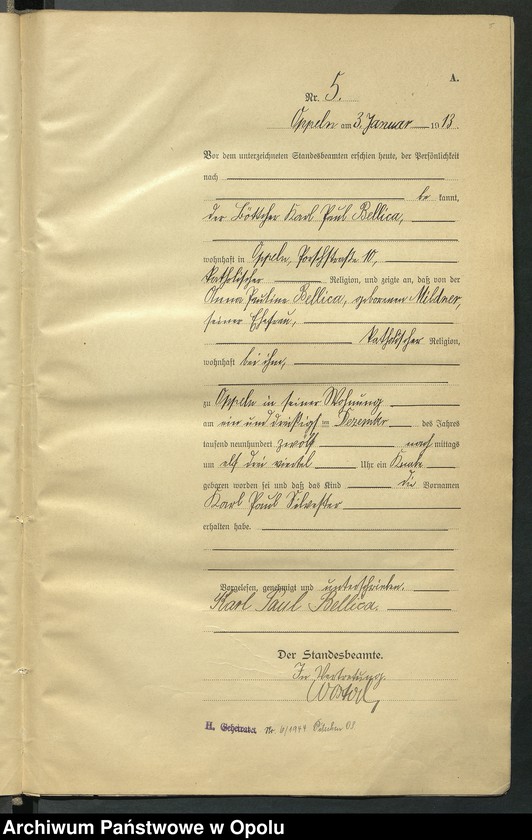 A.
Nr. 5.
Oppeln am 3. Januar 1913
Vor dem unterzeichneten Standesbeamten erschien heute, der Persönlichkeit
nach
be kannt,
der Böttcher Karl Paul Bellica,
wohnhaft in Oppeln, 10,
katholischer Religion, und zeigte an, daß von der
Anna Pauline Bellica, geborenen Mildner,
seiner Ehefrau,
katholischer Religion,
wohnhaft bei ihm,
zu Oppeln in seiner Wohnung
am ein und dreißigsten Dezember des Jahres
tausend neunhundert zwölf nach mittags
um elf drei viertel Uhr ein Knabe
geboren worden sei und daß das Kind die Vornamen
Karl Paul Silvester
erhalten habe.
Vorgelesen, genehmigt und unterschrieben.
Karl Paul Bellica.
Der Standesbeamte.
In Vertretung.
H. Geheiratet Nr. 6/1944
Archiwum Państwowe w Opolu